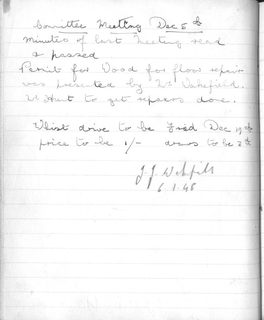 Committee Meeting Dec 5th
Minutes of last Meeting read
& passed
Permit for Wood for floor repair
was presented by Mr Wakefield.
to get repairs done.
Whist drive to be Dec 19th
price to be 1/- to be
J. J. Wakefield
6.1.46